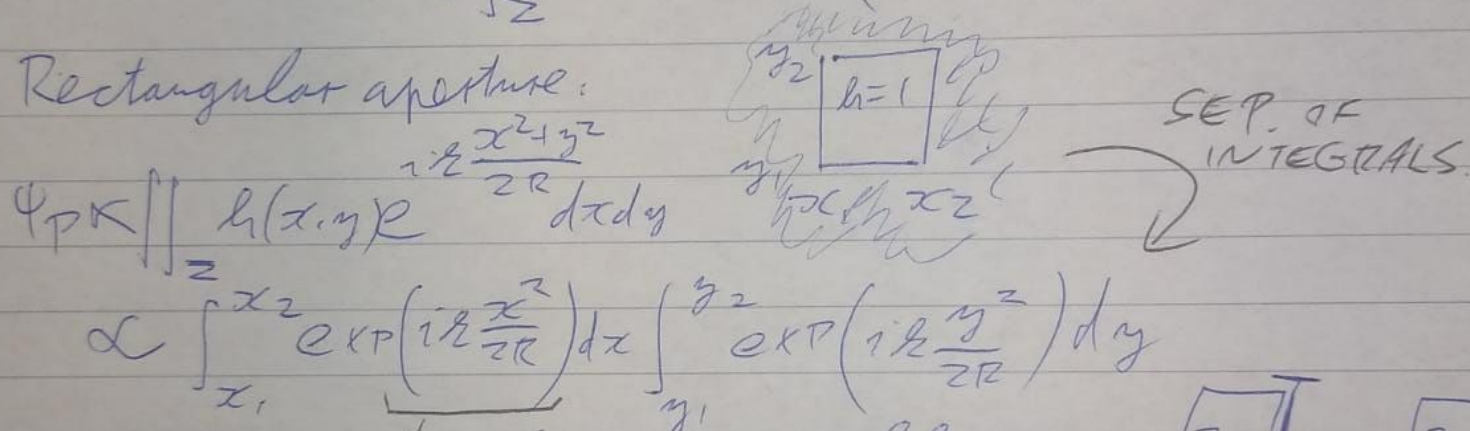 √2
Rectangular aperture.
y₂ h=1
y₁ x₁ x₂
SEP. OF
INTEGRALS.
ψ_P ∝ ∬_Σ h(x,y)e^{ik (x²+y²)/2R} dxdy
∝ ∫_{x₁}^{x₂} exp(ik x²/2R)dx ∫_{y₁}^{y₂} exp(ik y²/2R)dy